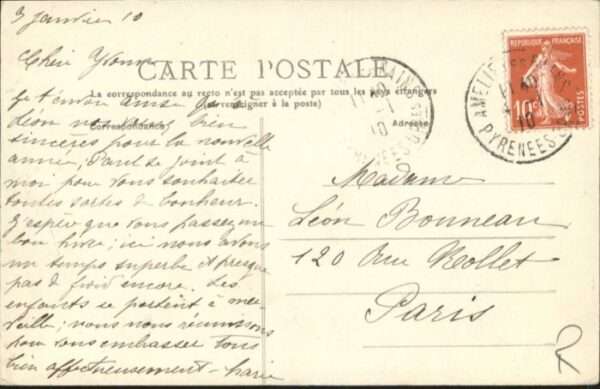 3 janvier 10
Chère Yvonne
CARTE POSTALE
La correspondance au recto n'est pas acceptée par tous les pays étrangers
(se renseigner à la poste)
Correspondance
Adresse
bien
sincères pour la nouvelle
année, Paul se joint à
moi pour vous souhaiter
toutes sortes de bonheur.
J'espère que vous passez un
bon hiver; ici nous avons
un temps superbe et presque
pas de froid encore. Les
enfants se portent à mer-
veille; nous nous réunissons
pour vous embrasser tous
bien affectueusement
Madame
Léon Bonneau
120 Rue Nollet
Paris
10
POSTES
AMELIE
PYRENEES
10